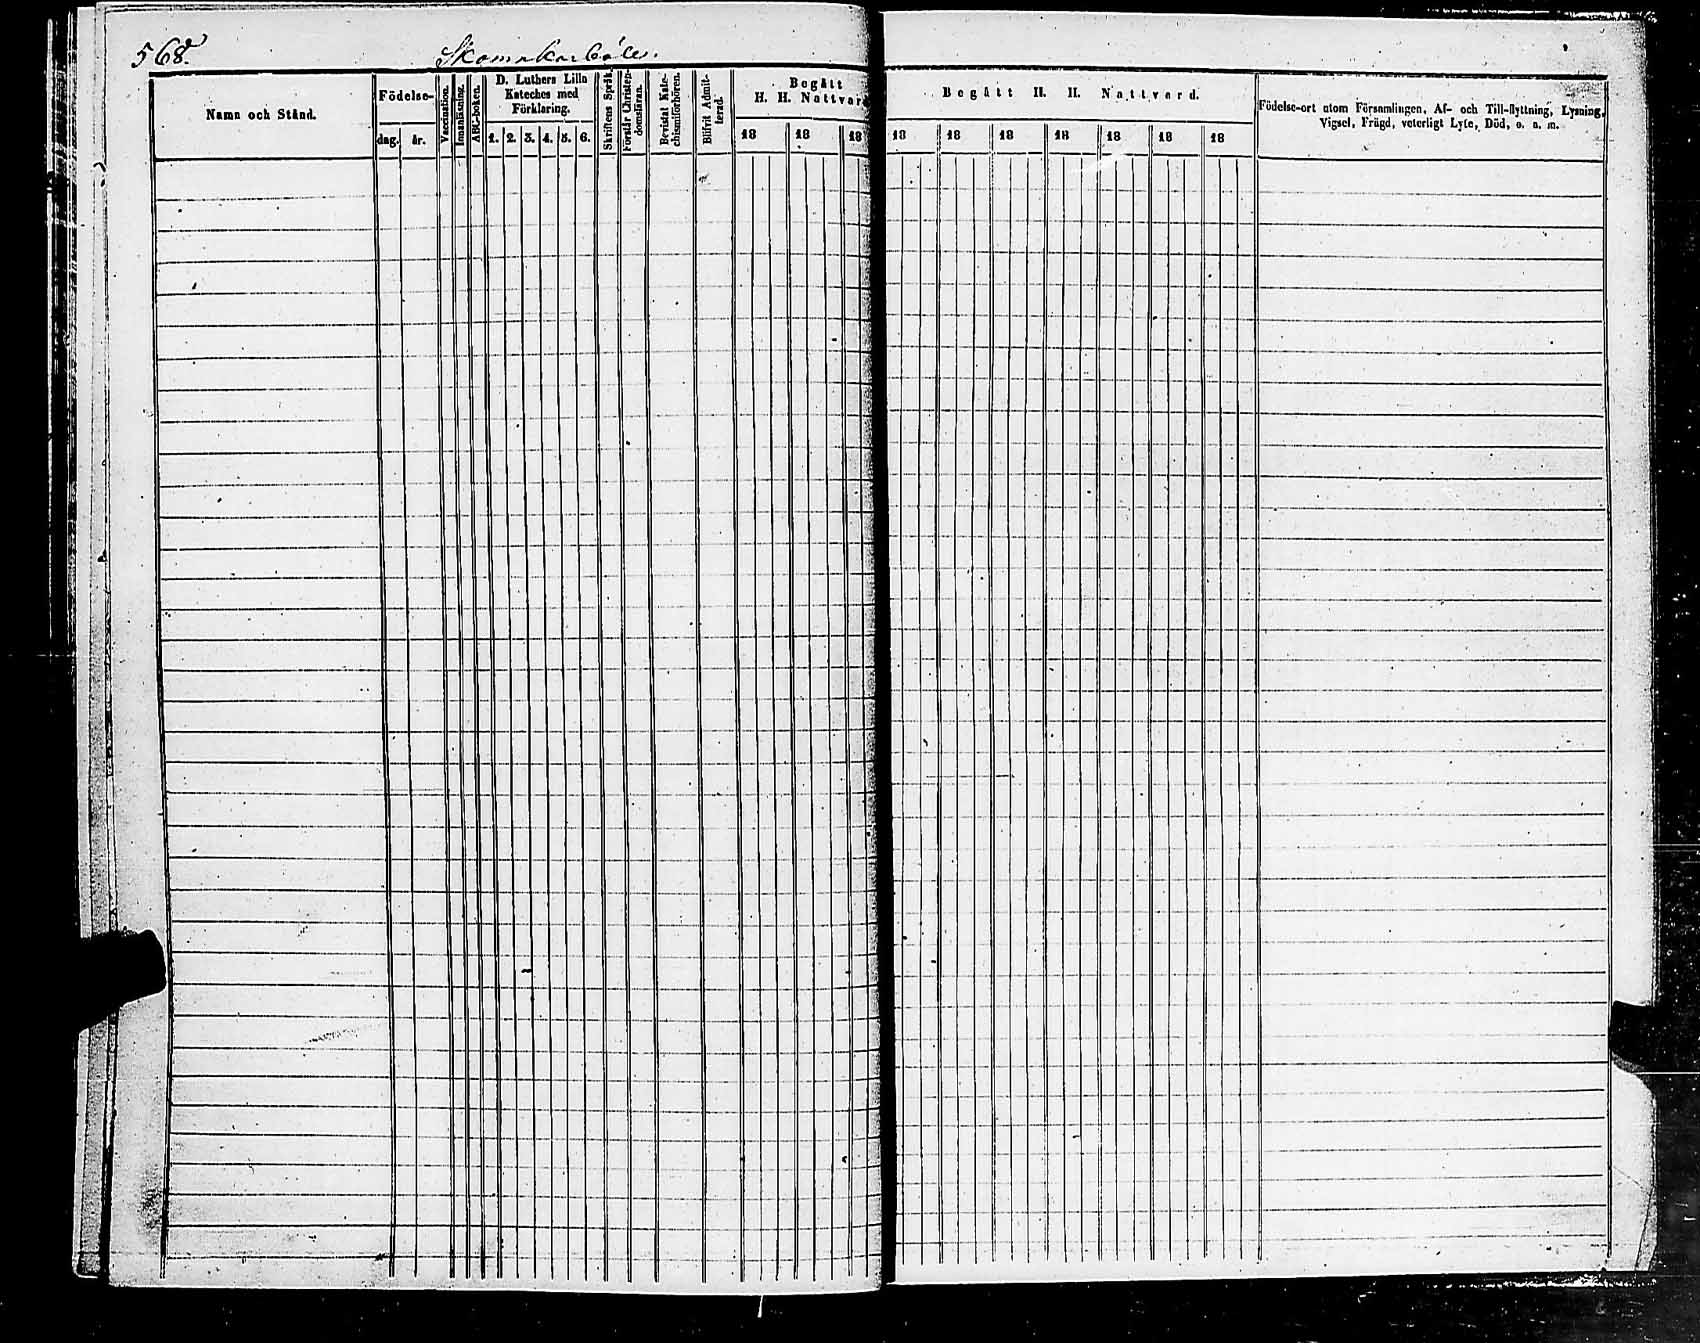 568. Skomakarböle.
Namn och Stånd.
Födelse-
dag. år.
Vaccination.
Innanläsning.
ABC-boken.
D. Luthers Lilla
Kateches med
Förklaring.
1. 2. 3. 4. 5. 6.
Skriftens Språk.
Förstår Christen-
domsläran.
Bevistat Kate-
chismiförhören.
Blifvit Admit-
terad.
Begått
H. H. Nattvard
18 18 18
Begått H. H. Nattvard.
18 18 18 18 18 18 18
Födelse-ort utom Församlingen, Af- och Till-flyttning, Lysning,
Vigsel, Frägd, veterligt Lyte, Död, o. a. m.